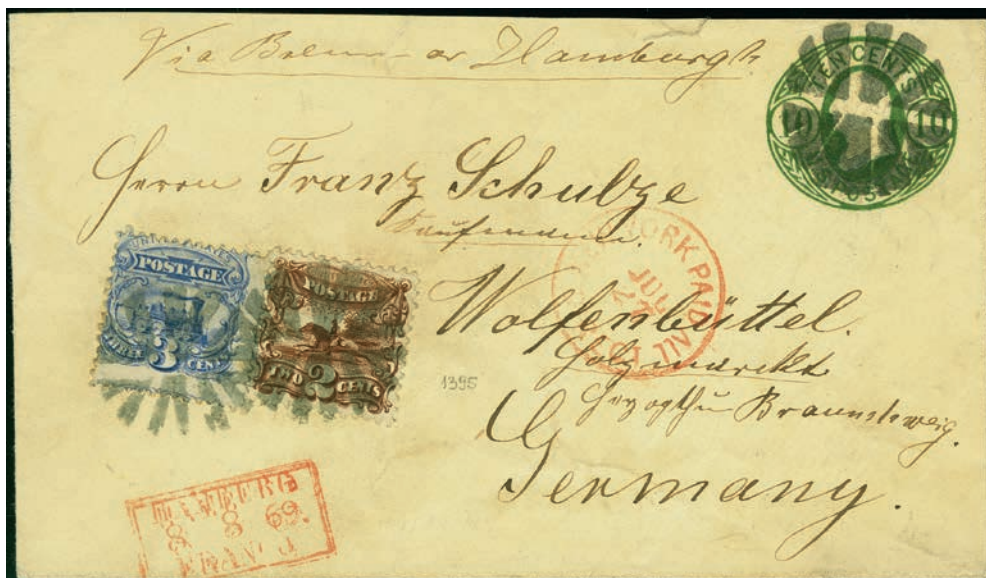 Via Bremen or Hamburgh
TEN CENTS
10 10
U.S. POSTAGE
Herrn Franz Schulze
Kaufmann.
UNITED STATES
POSTAGE
THREE 3 CENTS
POSTAGE
TWO 2 CENTS
YORK PAID ALL
JUL
Wolfenbüttel.
Holzmarckt
1395
Herzogthu Braunschweig.
Germany.
HAMBURG
8 8 69.
FRANCO